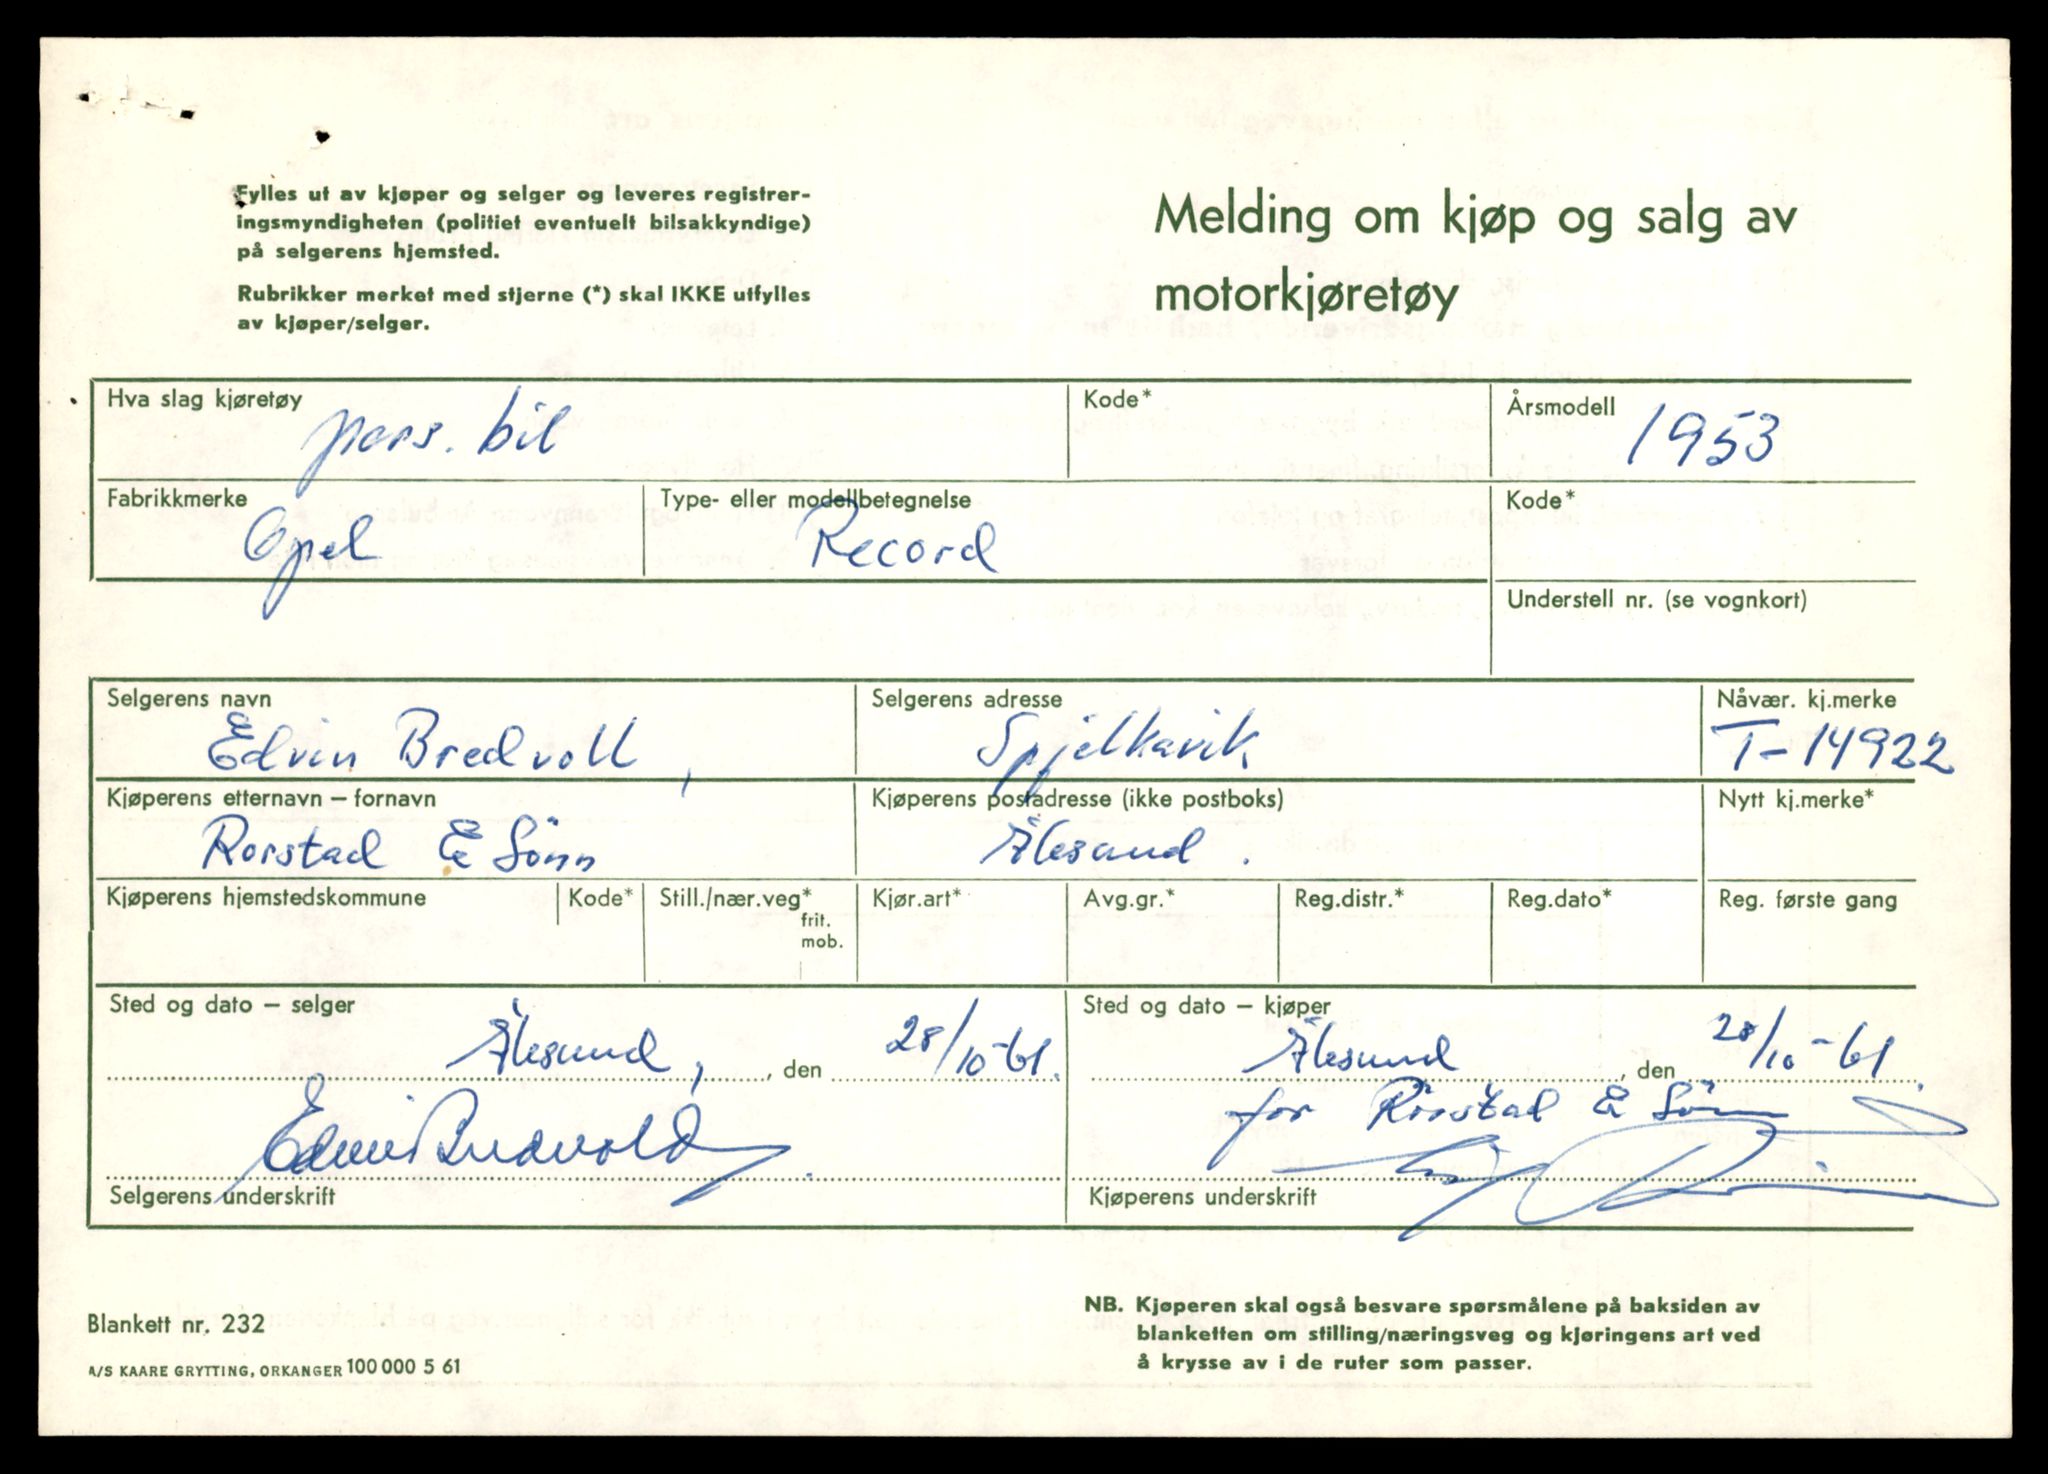 Fylles ut av kjøper og selger og leveres registrer-
ingsmyndigheten (politiet eventuelt bilsakkyndige)
på selgerens hjemsted.
Rubrikker merket med stjerne (*) skal IKKE utfylles
av kjøper/selger.
Melding om kjøp og salg av
motorkjøretøy
Hva slag kjøretøy
pers. bil
Kode*
Årsmodell
1953
Fabrikkmerke
Opel
Type- eller modellbetegnelse
Record
Kode*
Understell nr. (se vognkort)
Selgerens navn
Edvin Bredvoll,
Selgerens adresse
Spjelkavik
Nåvær. kj.merke
T-14922
Kjøperens etternavn – fornavn
Rorstad & Sönn
Kjøperens postadresse (ikke postboks)
Ålesund.
Nytt kj.merke*
Kjøperens hjemstedskommune
Kode*
Still./nær.veg*
frit.
mob.
Kjør.art*
Avg.gr.*
Reg.distr.*
Reg.dato*
Reg. første gang
Sted og dato – selger
Ålesund, , den 28/10-61.
Edvin Bredvold
Selgerens underskrift
Sted og dato – kjøper
Ålesund , den 28/10-61.
for Rörstad & Sönn
Kjøperens underskrift
Blankett nr. 232
A/S KAARE GRYTTING, ORKANGER 100 000 5 61
NB. Kjøperen skal også besvare spørsmålene på baksiden av
blanketten om stilling/næringsveg og kjøringens art ved
å krysse av i de ruter som passer.